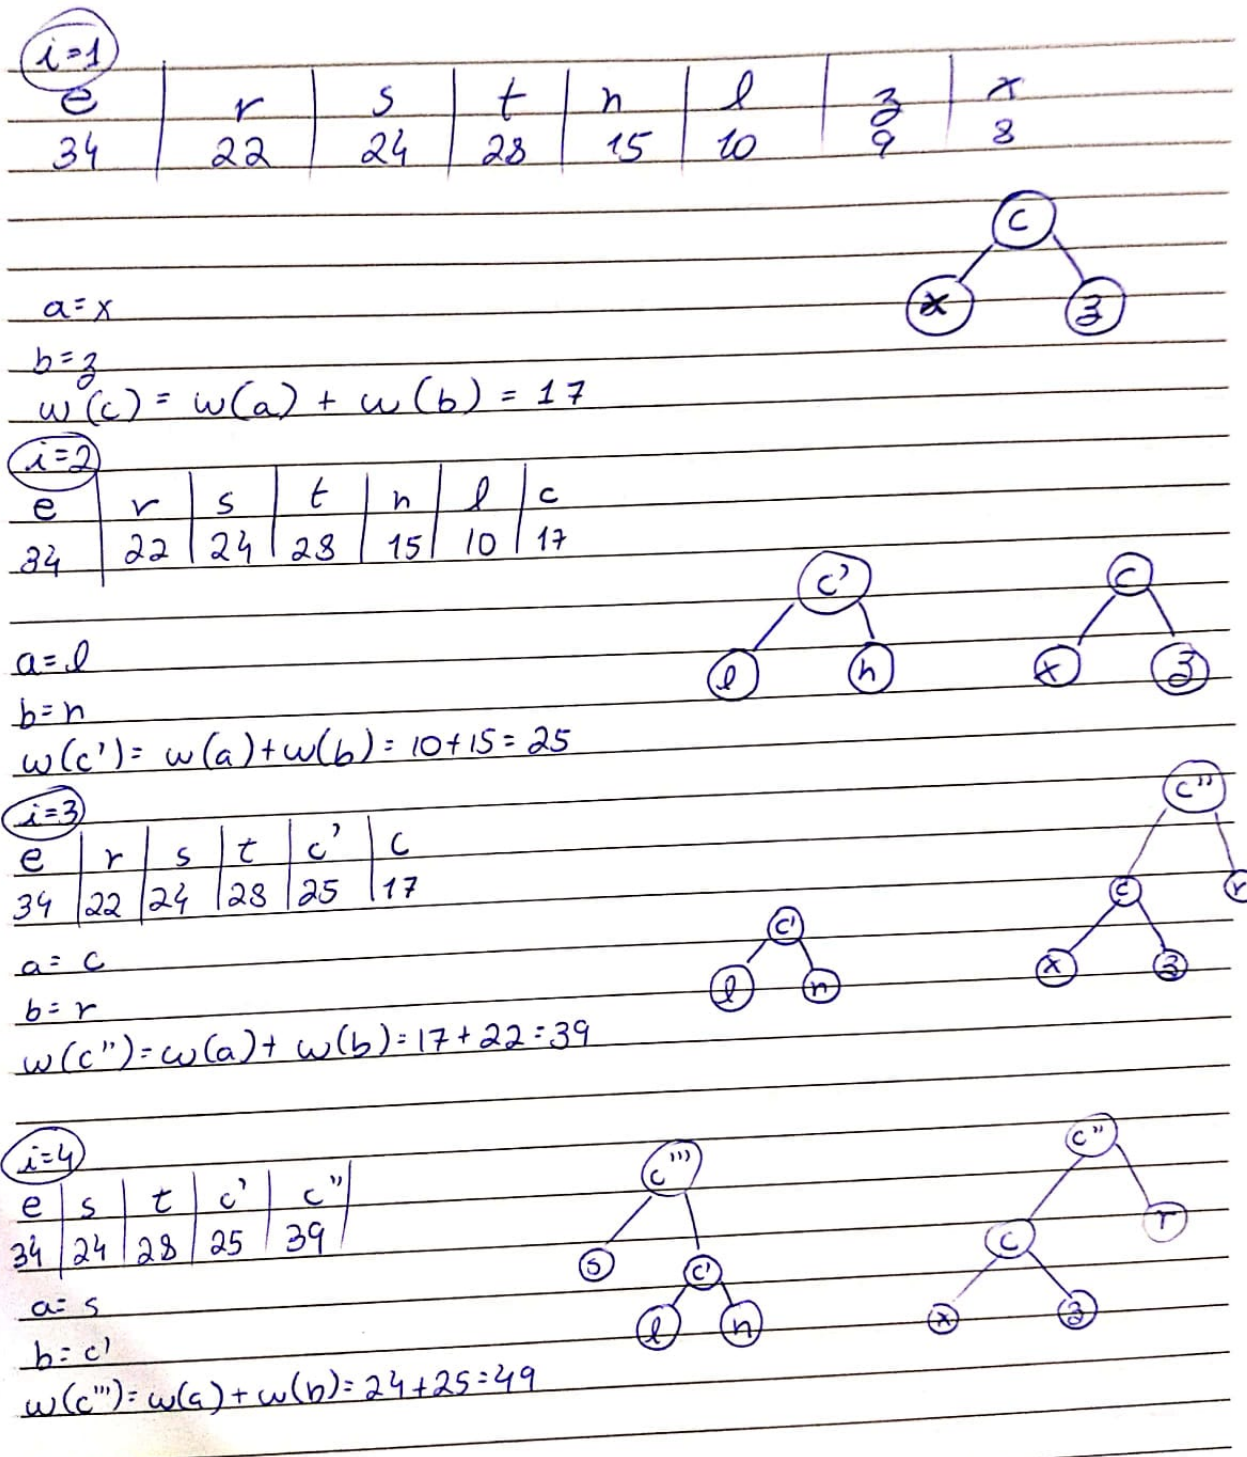 i=1
e r s t n l z x
34 22 24 28 15 10 9 8
c
x z
a=x
b=z
w(c) = w(a) + w(b) = 17
i=2
e r s t n l c
34 22 24 28 15 10 17
c' c
l n x z
a=l
b=n
w(c')= w(a)+w(b)=10+15=25
c''
i=3
e r s t c' c
34 22 24 28 25 17
c r
c'
a= c
l n x z
b=r
w(c'')=w(a)+ w(b)=17+22=39
c''
i=4
c'''
e s t c' c''
34 24 28 25 39
c r
s c'
a= s
l n x z
b= c'
w(c''')=w(a)+w(b)=24+25=49